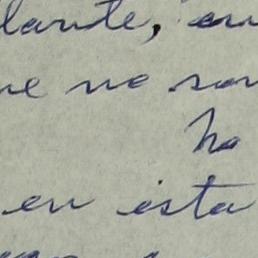 lante, en
ue no son
ha
en esta